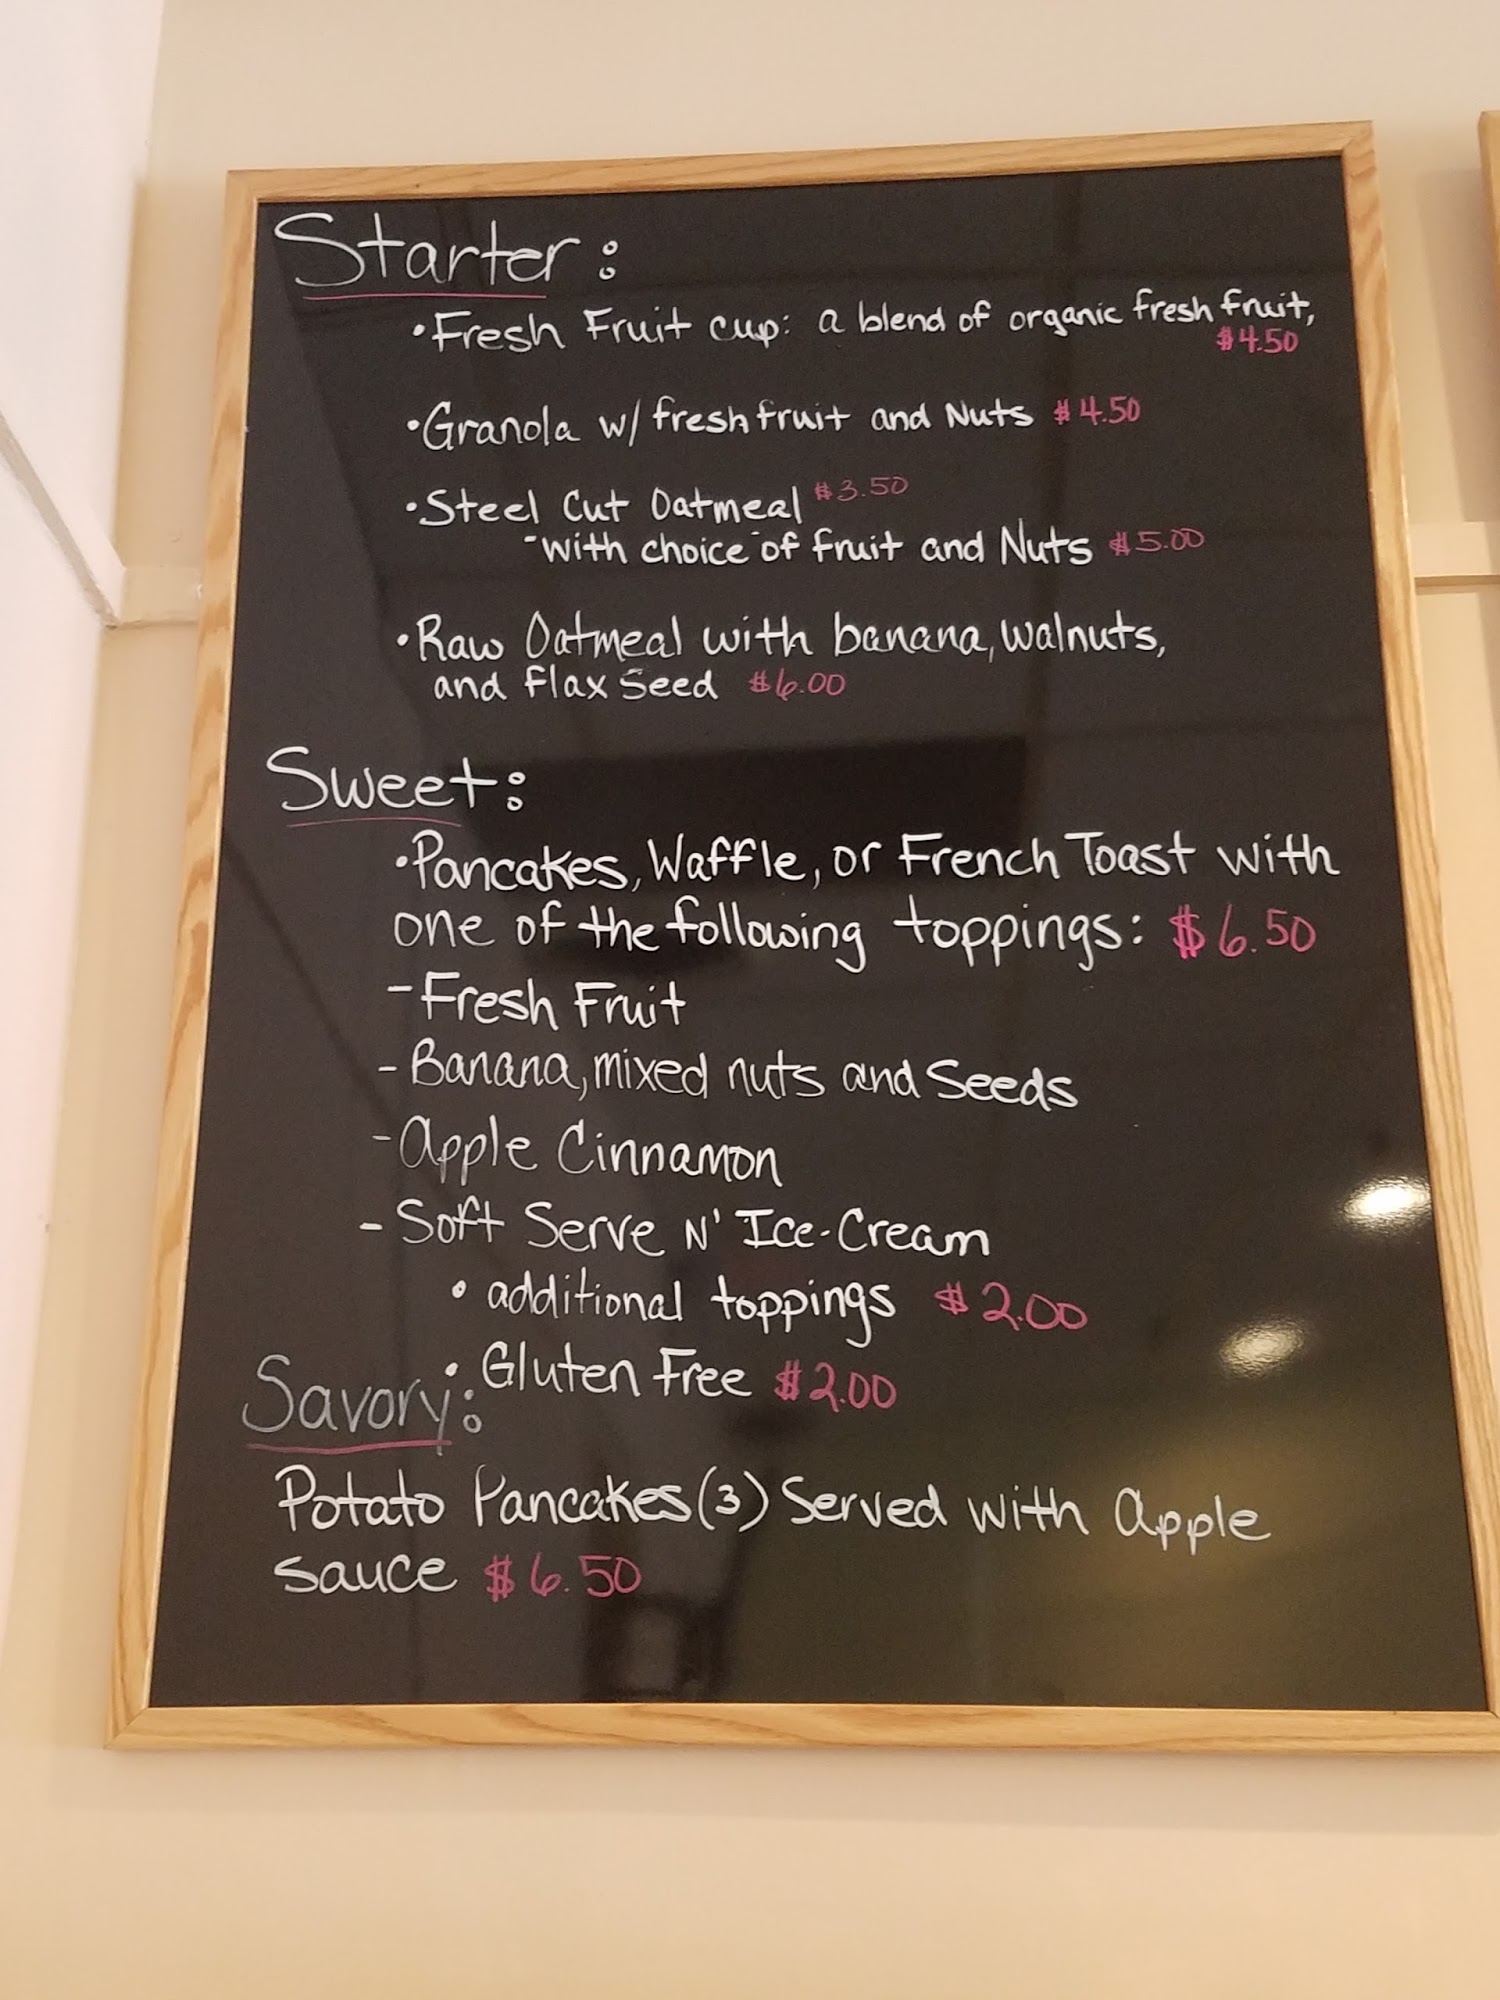 Starter:
• Fresh Fruit cup: a blend of organic fresh fruit,
$4.50
• Granola w/ fresh fruit and Nuts $4.50
• Steel Cut Oatmeal $3.50
- with choice of fruit and Nuts $5.00
• Raw Oatmeal with banana, walnuts,
and flax Seed $6.00
Sweet:
• Pancakes, Waffle, or French Toast with
one of the following toppings: $6.50
- Fresh Fruit
- Banana, mixed nuts and Seeds
- Apple Cinnamon
- Soft Serve N' Ice-Cream
• additional toppings $2.00
• Gluten Free $2.00
Savory:
Potato Pancakes (3) Served with Apple
sauce $6.50